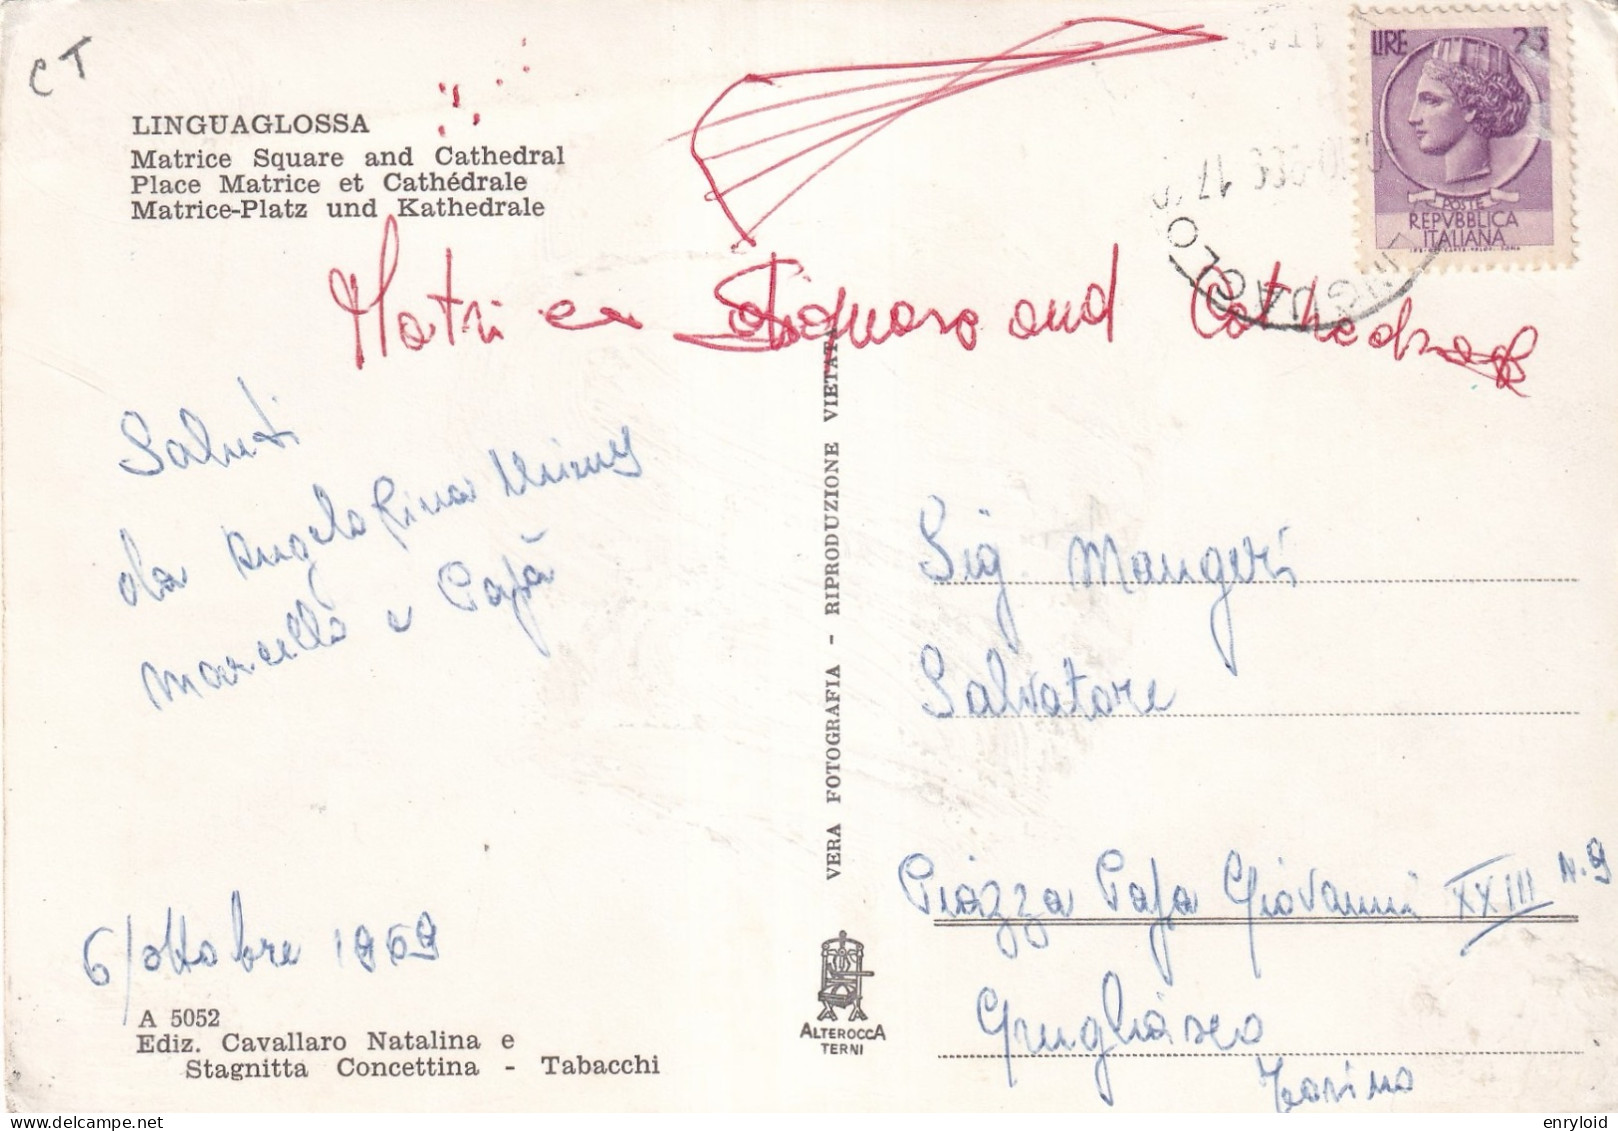 CT
LINGUAGLOSSA
Matrice Square and Cathedral
Place Matrice et Cathédrale
Matrice-Platz und Kathedrale
LIRE 25
POSTE
REPVBBLICA
ITALIANA
LINGUAGLO
17
Matri ce Squaro and Cathedra
Saluti
da Angela Rina
Marcello e Papà
6/ottobre 1969
A 5052
Ediz. Cavallaro Natalina e
Stagnitta Concettina - Tabacchi
VERA FOTOGRAFIA - RIPRODUZIONE VIETATA
ALTEROCCA
TERNI
Sig. Mangeri
Salvatore
Piazza Papa Giovanni XXIII N. 9
Grugliasco
Torino
enryloid